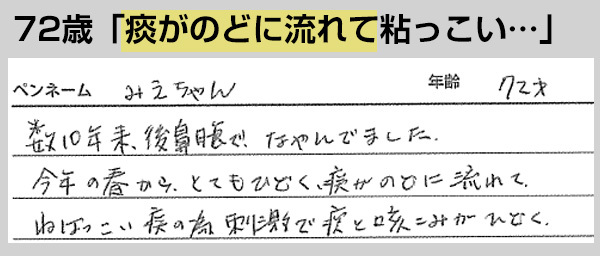 72歳「痰がのどに流れて粘っこい…」
ペンネーム みえちゃん 年齢 72才
数10年来、後鼻漏で、なやんでました。
今年の春から、とてもひどく、痰がのどに流れて、
ねばっこい痰の為刺激で痰と咳こみがひどく、